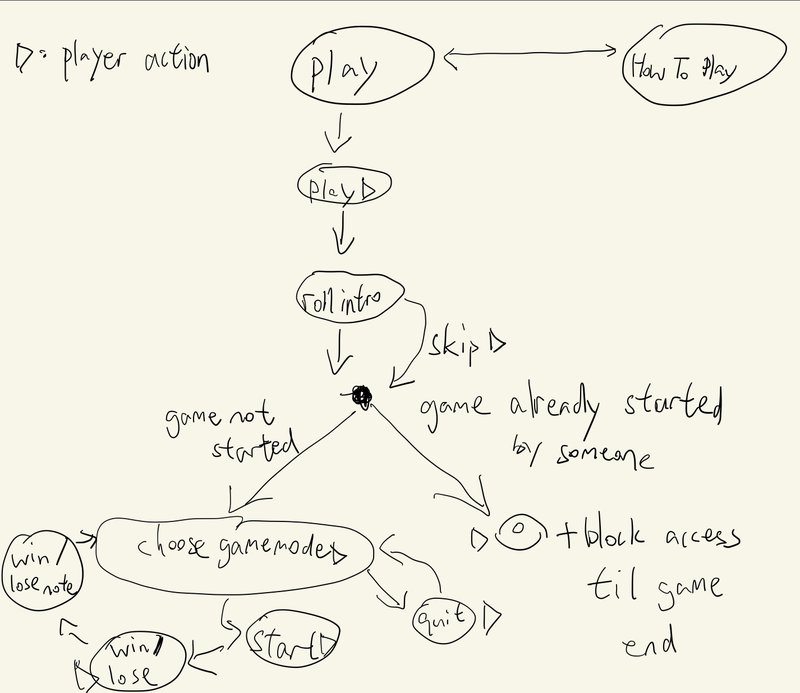 ▷: player action
play
How To Play
play ▷
roll intro
skip ▷
game already started
by someone
game not
started
choose gamemode ▷
▷ o + block access
til game
end
win/
lose note
quit ▷
start ▷
win/
lose
▷